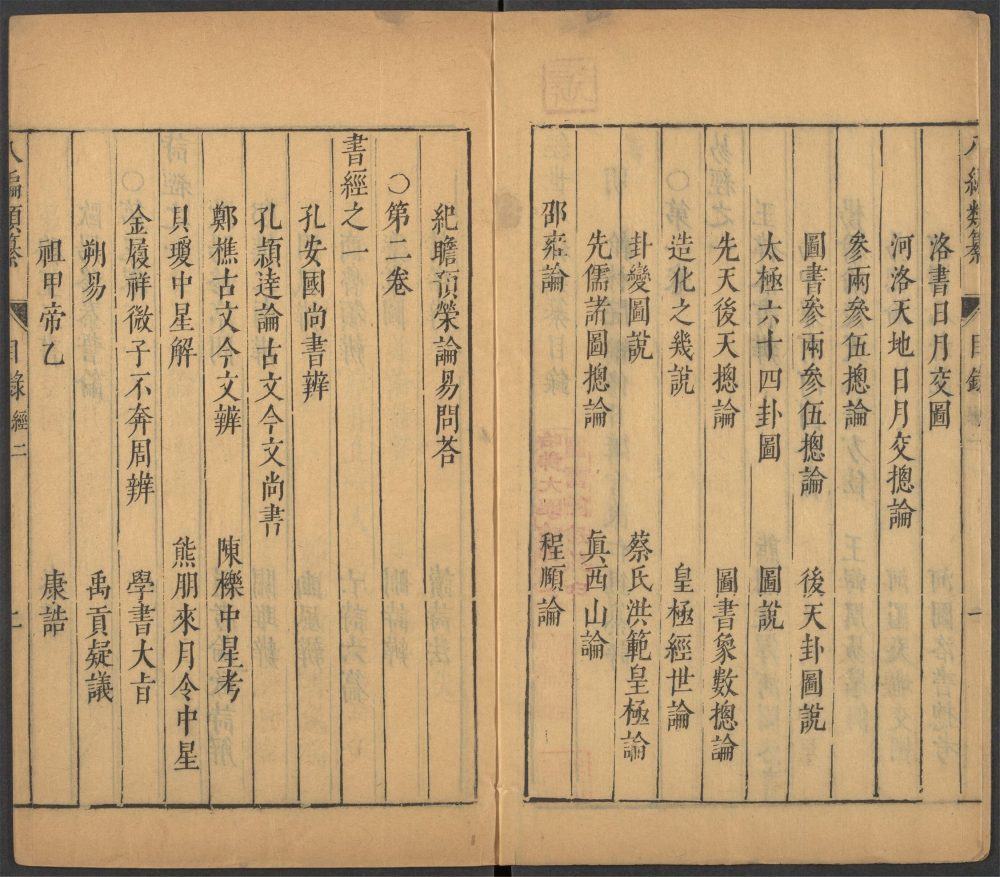 八編類纂 目錄 經一 一
洛書日月交圖
河洛天地日月交揔論
參兩參伍揔論
圖書參兩參伍揔論 後天卦圖說
太極六十四卦圖 圖說
先天後天揔論 圖書象數揔論
造化之幾說 皇極經世論
卦變圖說 蔡氏洪範皇極論
先儒諸圖揔論 眞西山論
邵雍論 程頤論
紀瞻顧榮論易問荅
○第二卷
書經之一
孔安國尚書辨
孔頴達論古文今文尚書
鄭樵古文今文辨 陳櫟中星考
貝瓊中星解 熊朋來月令中星
金履祥微子不奔周辨 學書大㫖
朔易 禹貢疑議
祖甲帝乙 康誥
八編類纂 目錄 經二 二